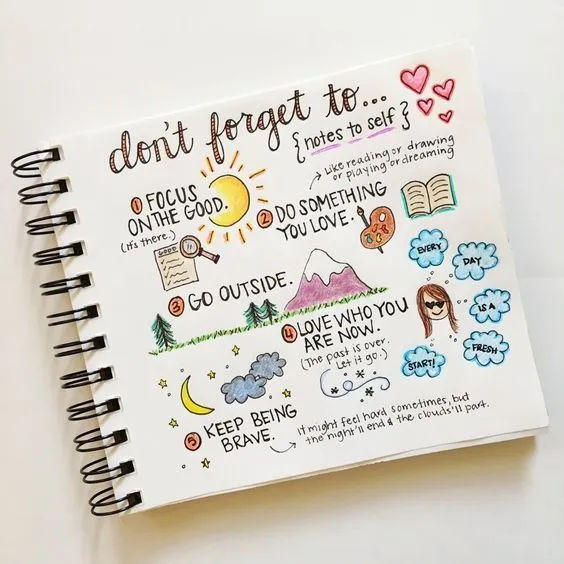 don't forget to...
{notes to self}
Like reading or drawing
or playing or dreaming
① FOCUS
ON THE GOOD.
(It's there.)
GOOD
② DO SOMETHING
YOU LOVE.
③ GO OUTSIDE.
④ LOVE WHO YOU
ARE NOW.
(The past is over.
Let it go.)
EVERY
DAY
IS A
FRESH
START!
⑤ KEEP BEING
BRAVE.
it might feel hard sometimes, but
the night'll end & the clouds'll part.